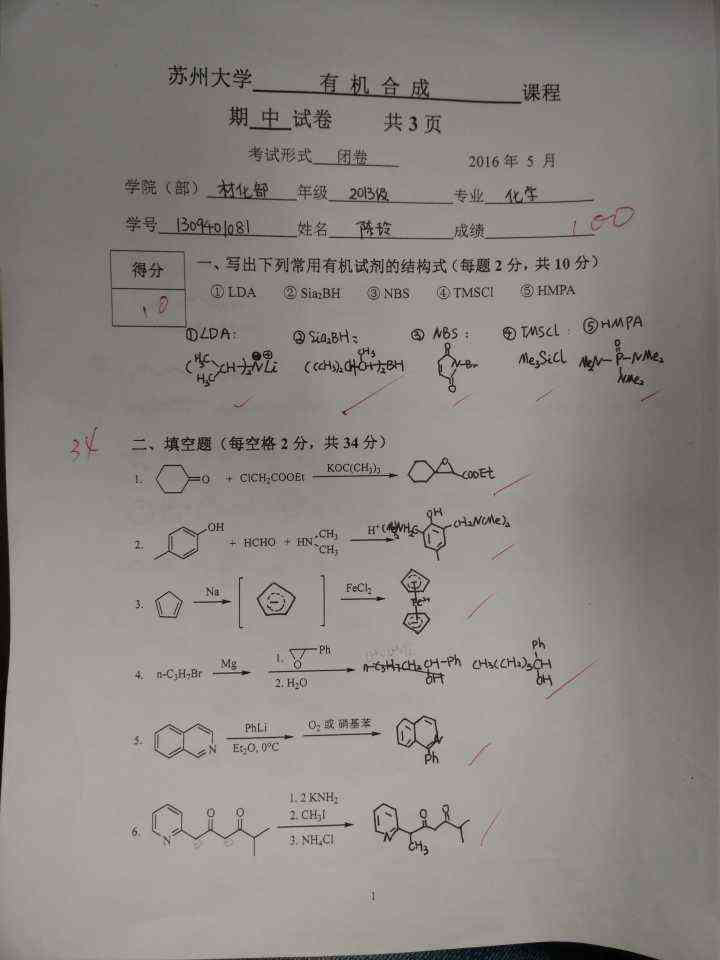 苏州大学 有 机 合 成 课程
期 中 试卷 共 3 页
考试形式 闭卷 2016 年 5 月
学院（部） 材化部 年级 2013级 专业 化学
学号 1309401081 姓名 陈铃 成绩 100
得分 一、写出下列常用有机试剂的结构式（每题 2 分，共 10 分）
10 ① LDA ② Sia₂BH ③ NBS ④ TMSCl ⑤ HMPA
①LDA: ②Sia₂BH: ③ NBS: ④ TMSCl: ⑤HMPA
34 二、填空题（每空格 2 分，共 34 分）
1. O + ClCH₂COOEt KOC(CH₃)₃ O COOEt
2. OH + HCHO + HN CH₃ CH₃ H⁺ OH CH₂N(Me)₂
3. Na FeCl₂ Fe²⁺
4. n-C₃H₇Br Mg 1. O Ph 2. H₂O CH₃(CH₂)₃CH Ph OH
5. N PhLi Et₂O, 0°C O₂ 或 硝基苯 N Ph
6. N O O 1. 2 KNH₂ 2. CH₃I 3. NH₄Cl N CH₃ O O
1